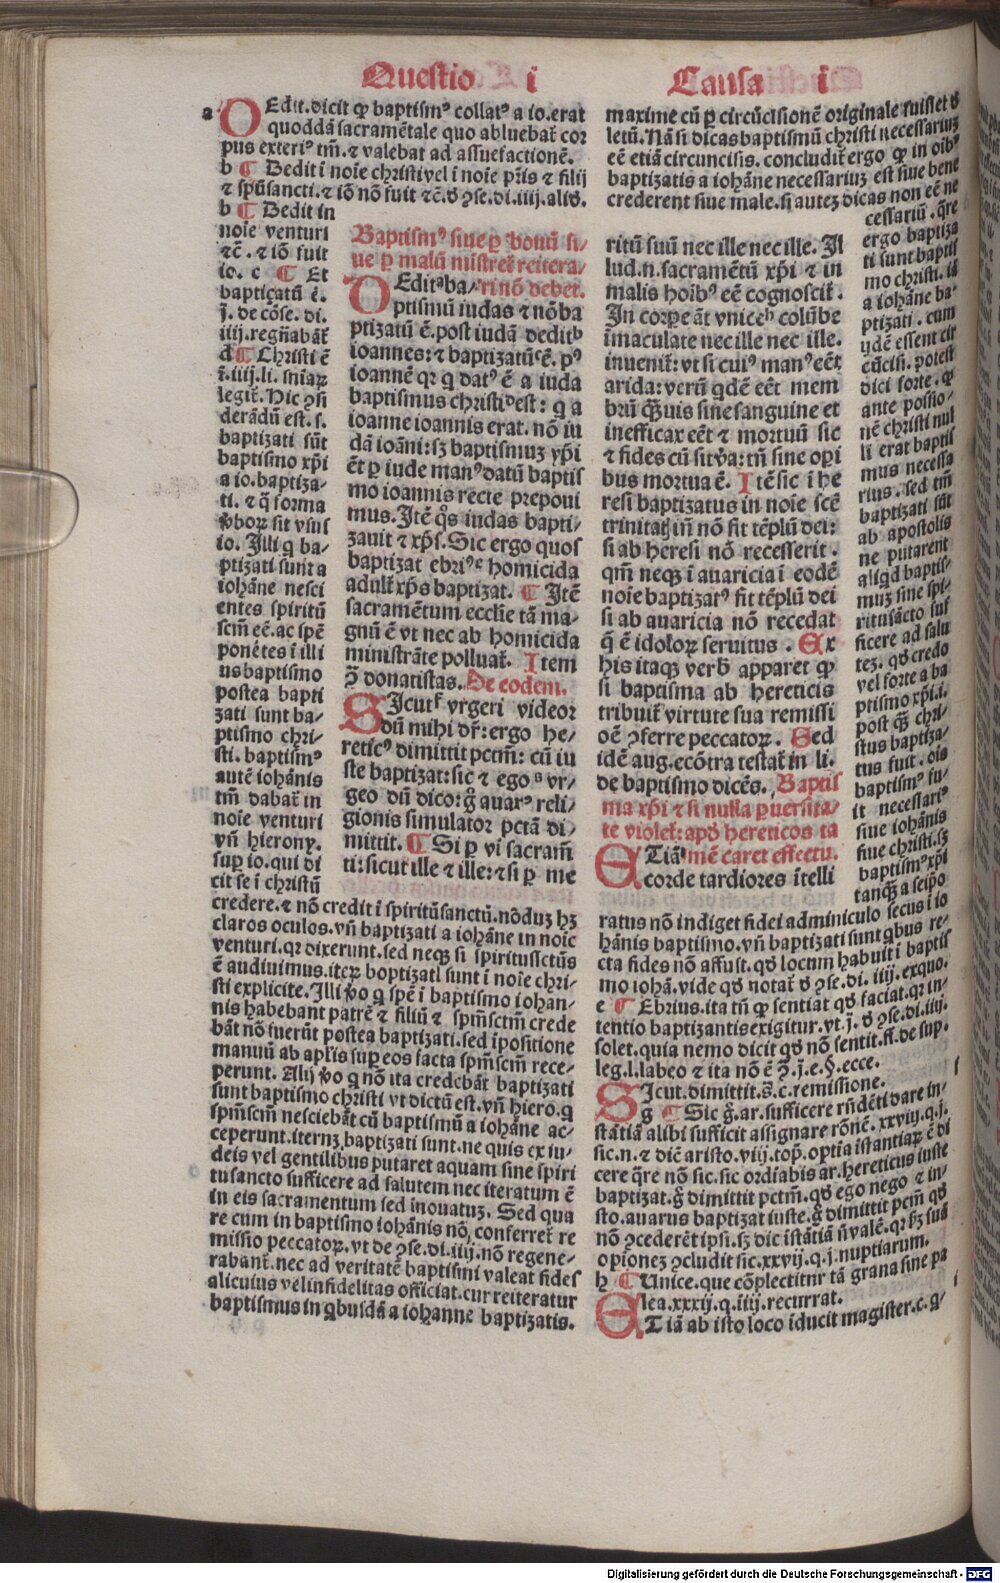 Questio i
Causa i
a DEdit.dicit ꝙ baptismꝰ collatꝰ a io.erat
quoddā sacramētale quo abluebat̄ cor
pus exteriꝰ tm̄.⁊ valebat ad assuefactionē.
b ¶ Dedit ī noīe christi vel ī noīe pr̄is ⁊ filij
⁊ spūssancti.⁊ iō nō fuit ⁊c̄.d̄ ꝯse.di.iiij.aliđ.
b ¶ Dedit in
noīe venturi
⁊c̄.⁊ iō fuit
io. c ¶ Et
bapticatū ē.
j. de cōse. di.
iiij.regn̄abāt̄
d ¶ Christi ē
ī.iiij.li. sniaꝝ
legit̄. Hic ꝯsi
derādū est. ſ.
baptizati sūt
baptismo xp̄i
a io.baptiza-
ti. ⁊ q̄ forma
ꝟboꝝ sit vsus
io. Illi q̄ ba-
ptizati sunt a
iohāne nesci
entes spiritū
scm̄ eē.ac spē
ponētes ī illi
us baptismo
postea bapti
zati sunt ba-
ptismo chri-
sti. baptismꝰ
autē iohānis
tm̄ dabat̄ in
noīe venturi
vn̄ hieronꝝ.
suꝑ io.qui di
cit se ī christū
credere.⁊ nō credit ī spiritūsanctū.nōduꝫ hꝫ
claros oculos.vn̄ baptizati a iohāne in noīe
venturi.qꝛ dixerunt.sed neqꝫ si spiritussctūs
ē audiuimus.iteꝝ boptizati sunt ī noīe chri-
sti explicite.Illi ꝟo q̄ spē ī baptismo iohan-
nis habebant patrē ⁊ filiū ⁊ spm̄sctm̄ crede
bāt nō fuerūt postea baptizati.sed īpositione
manuū ab apl̄is suꝑ eos facta spm̄scm̄ rece-
perunt. Alij ꝟo q̄ nō ita credebāt baptizati
sunt baptismo christi vt dictū est.vn̄ hiero.q̄
spm̄scm̄ nesciebāt cū baptismū a iohāne ac-
ceperunt.iternꝫ baptizati sunt.ne quis ex iu-
deis vel gentilibus putaret aquam sine spiri
tusancto sufficere ad salutem nec iteratum ē
in eis sacramentum sed inouatuꝫ. Sed qua
re cum in baptismo iohānis nō conferret̄ re
missio peccatoꝝ.vt de ꝯse.di.iiij.nō regene-
rabant̄.nec ad veritatē baptismi valeat fides
alicuius vel infidelitas officiat.cur reiteratur
baptismus in qͥbusdā a iohanne baptizatis.
Baptismꝰ siue ꝑ bonū si-
ue ꝑ malū ministret̄ reitera-
ri nō debet.
DEditᵃ ba-
ptismū iudas ⁊ nō ba
ptizatū ē.post iudā deditᵇ
ioannes:⁊ baptizatūᶜē. pꝰ
ioannē qꝛ q̄ datꝰ ē a iuda
baptismus christiᵈest: q̄ a
ioanne ioannis erat. nō iu
dā ioāni:sꝫ baptismuꝫ xp̄i
ēt ꝑ iude manꝰ datū baptis
mo ioannis recte preposui
mus.Itē q̊s iudas bapti-
zauit ⁊ xp̄s.Sic ergo quos
baptizat ebriꝰᵉ homicida
adult̄ xp̄s baptizat. ¶ Itē
sacramētum ecclīe tā ma-
gnū ē vt nec ab homicida
ministrāte polluat̄. Item
ꝯ donatistas. De eodem.
SIcutᶠ vrgeri videor
dū mihi dr̄:ergo he-
reticꝰ dimittit pctm̄: cū iu
ste baptizat:sic ⁊ egoᵍ vr-
geo dū dico:g̊ auarꝰ reli-
gionis simulator pctā di-
mittit. ¶ Si ꝑ vi sacram̄
ti:sicut ille ⁊ ille:⁊ si ꝑ me
maxime cū ꝑ circūcisionē originale fuisset d̄
letū.Nā si dicas baptismū christi necessariuꝫ
eē etiā circuncisis. concludit̄ ergo ꝙ in oībꝰ
baptizatis a iohāne necessariuꝫ est siue bene
crederent siue male.si autez dicas non eē ne
cessariū.q̄re
ergo baptiza
ti sunt baptis
mo christi. iā
a iohāne ba-
ptizati. cum
ijdē essent cir
cūcisi. potest
dici forte. ꝙ
ante passio-
nē christi nul
li erat baptis
mus necessa
rius. sed tm̄
baptizati sūt
ab apostolis
ne putarent
aliqd baptis-
muꝫ sine spi-
ritusācto suf
ficere ad salu
tez. qđ credo
vel forte a ba
ptismo xp̄i.i.
post q̄ꝫ chri-
stus baptiza-
tus fuit. oīs
baptismꝰ fu-
it necessariꝰ
siue iohānis
siue christi.sꝫ
baptismꝰ xp̄i
tanq̄ꝫ a seip̄o
rituū suū nec ille nec ille. Il
lud.n.sacramētū xp̄i ⁊ in
malis hoībꝰ eē cognoscit̄.
In corꝑe āt vniceʰ colūbe
īmaculate nec ille nec ille.
inuenit̄: vt si cuiꝰ manꝰ eēt
arida: verū qͥdē eēt mem
brū q̄ꝫuis sine sanguine et
inefficax eēt ⁊ mortuū sic
⁊ fides cū sit v̄a: tn̄ sine opi
bus mortua ē. Itē sic ī he
resi baptizatus in noīe scē
trinitatꝭ in̄ nō fit tēplū dei:
si ab heresi nō recesserit.
qm̄ neqꝫ ī auaricia ī eodē
noīe baptizatꝰ fit tēplū dei
si ab auaricia nō recedat
q̄ ē idoloꝝ seruitus. Ex
his itaqꝫ verƀ apparet ꝙ
si baptisma ab hereticis
tribuit̄ virtute sua remissi
oē ꝯferre peccatoꝝ. Sed
idē aug.ecōtra testat̄ in li.
de baptismo dicēs. Baptis
ma xp̄i ⁊ si nulla ꝑuersita-
te violet̄:apđ hereticos ta
mē caret effectu.
ETiāⁱ
corde tardiores ītelli
ratus nō indiget fidei adminiculo secus ī io
hānis baptismo.vn̄ baptizati sunt qͥbus re-
cta fides nō affust.qđ locum habuit ī baptis
mo iohā.vide qđ notat̄ d̄ ꝯse.di. iiij.exquo.
e ¶ Ebrius.ita tn̄ ꝙ sentiat qđ faciat.qꝛ in-
tentio baptizantis exigitur.vt.j. d̄ ꝯse.di.iiij.
solet.quia nemo dicit qđ nō sentit.ff.de sup.
leg.l.labeo ⁊ ita nō ē ꝯ.j.e.§.ecce.
f SIcut.dimittit.s̄.c.remissione.
g ¶ Sic g̊.ar.sufficere rn̄dēti dare in-
stātiā alibi sufficit assignare rōnē.xxviij.q.j.
sic.n.⁊ diē aristo.viij.top.optīa īstantiaꝝ ē di
cere q̄re nō sic.sic ordiabis ar.hereticus iuste
baptizat.g̊ dimittit pctm̄.qđ ego nego ⁊ in-
sto.auarus baptizat iuste.g̊ dimittit pcm̄ qđ
nō ꝯcederēt ipsi.sꝫ dic īstātiā n̄ valē.qꝛ ꝭꝫ suā
opionez ꝯcludit sic.xxvij.q.j.nuptiarum.
h ¶ Unice.que cōplectitnr tā grana sine pa
i lea.xxxij.q.iiij.recurrat.
ETiā ab isto loco īducit magister.c.q̄-
Digitalisierung gefördert durch die Deutsche Forschungsgemeinschaft - DFG